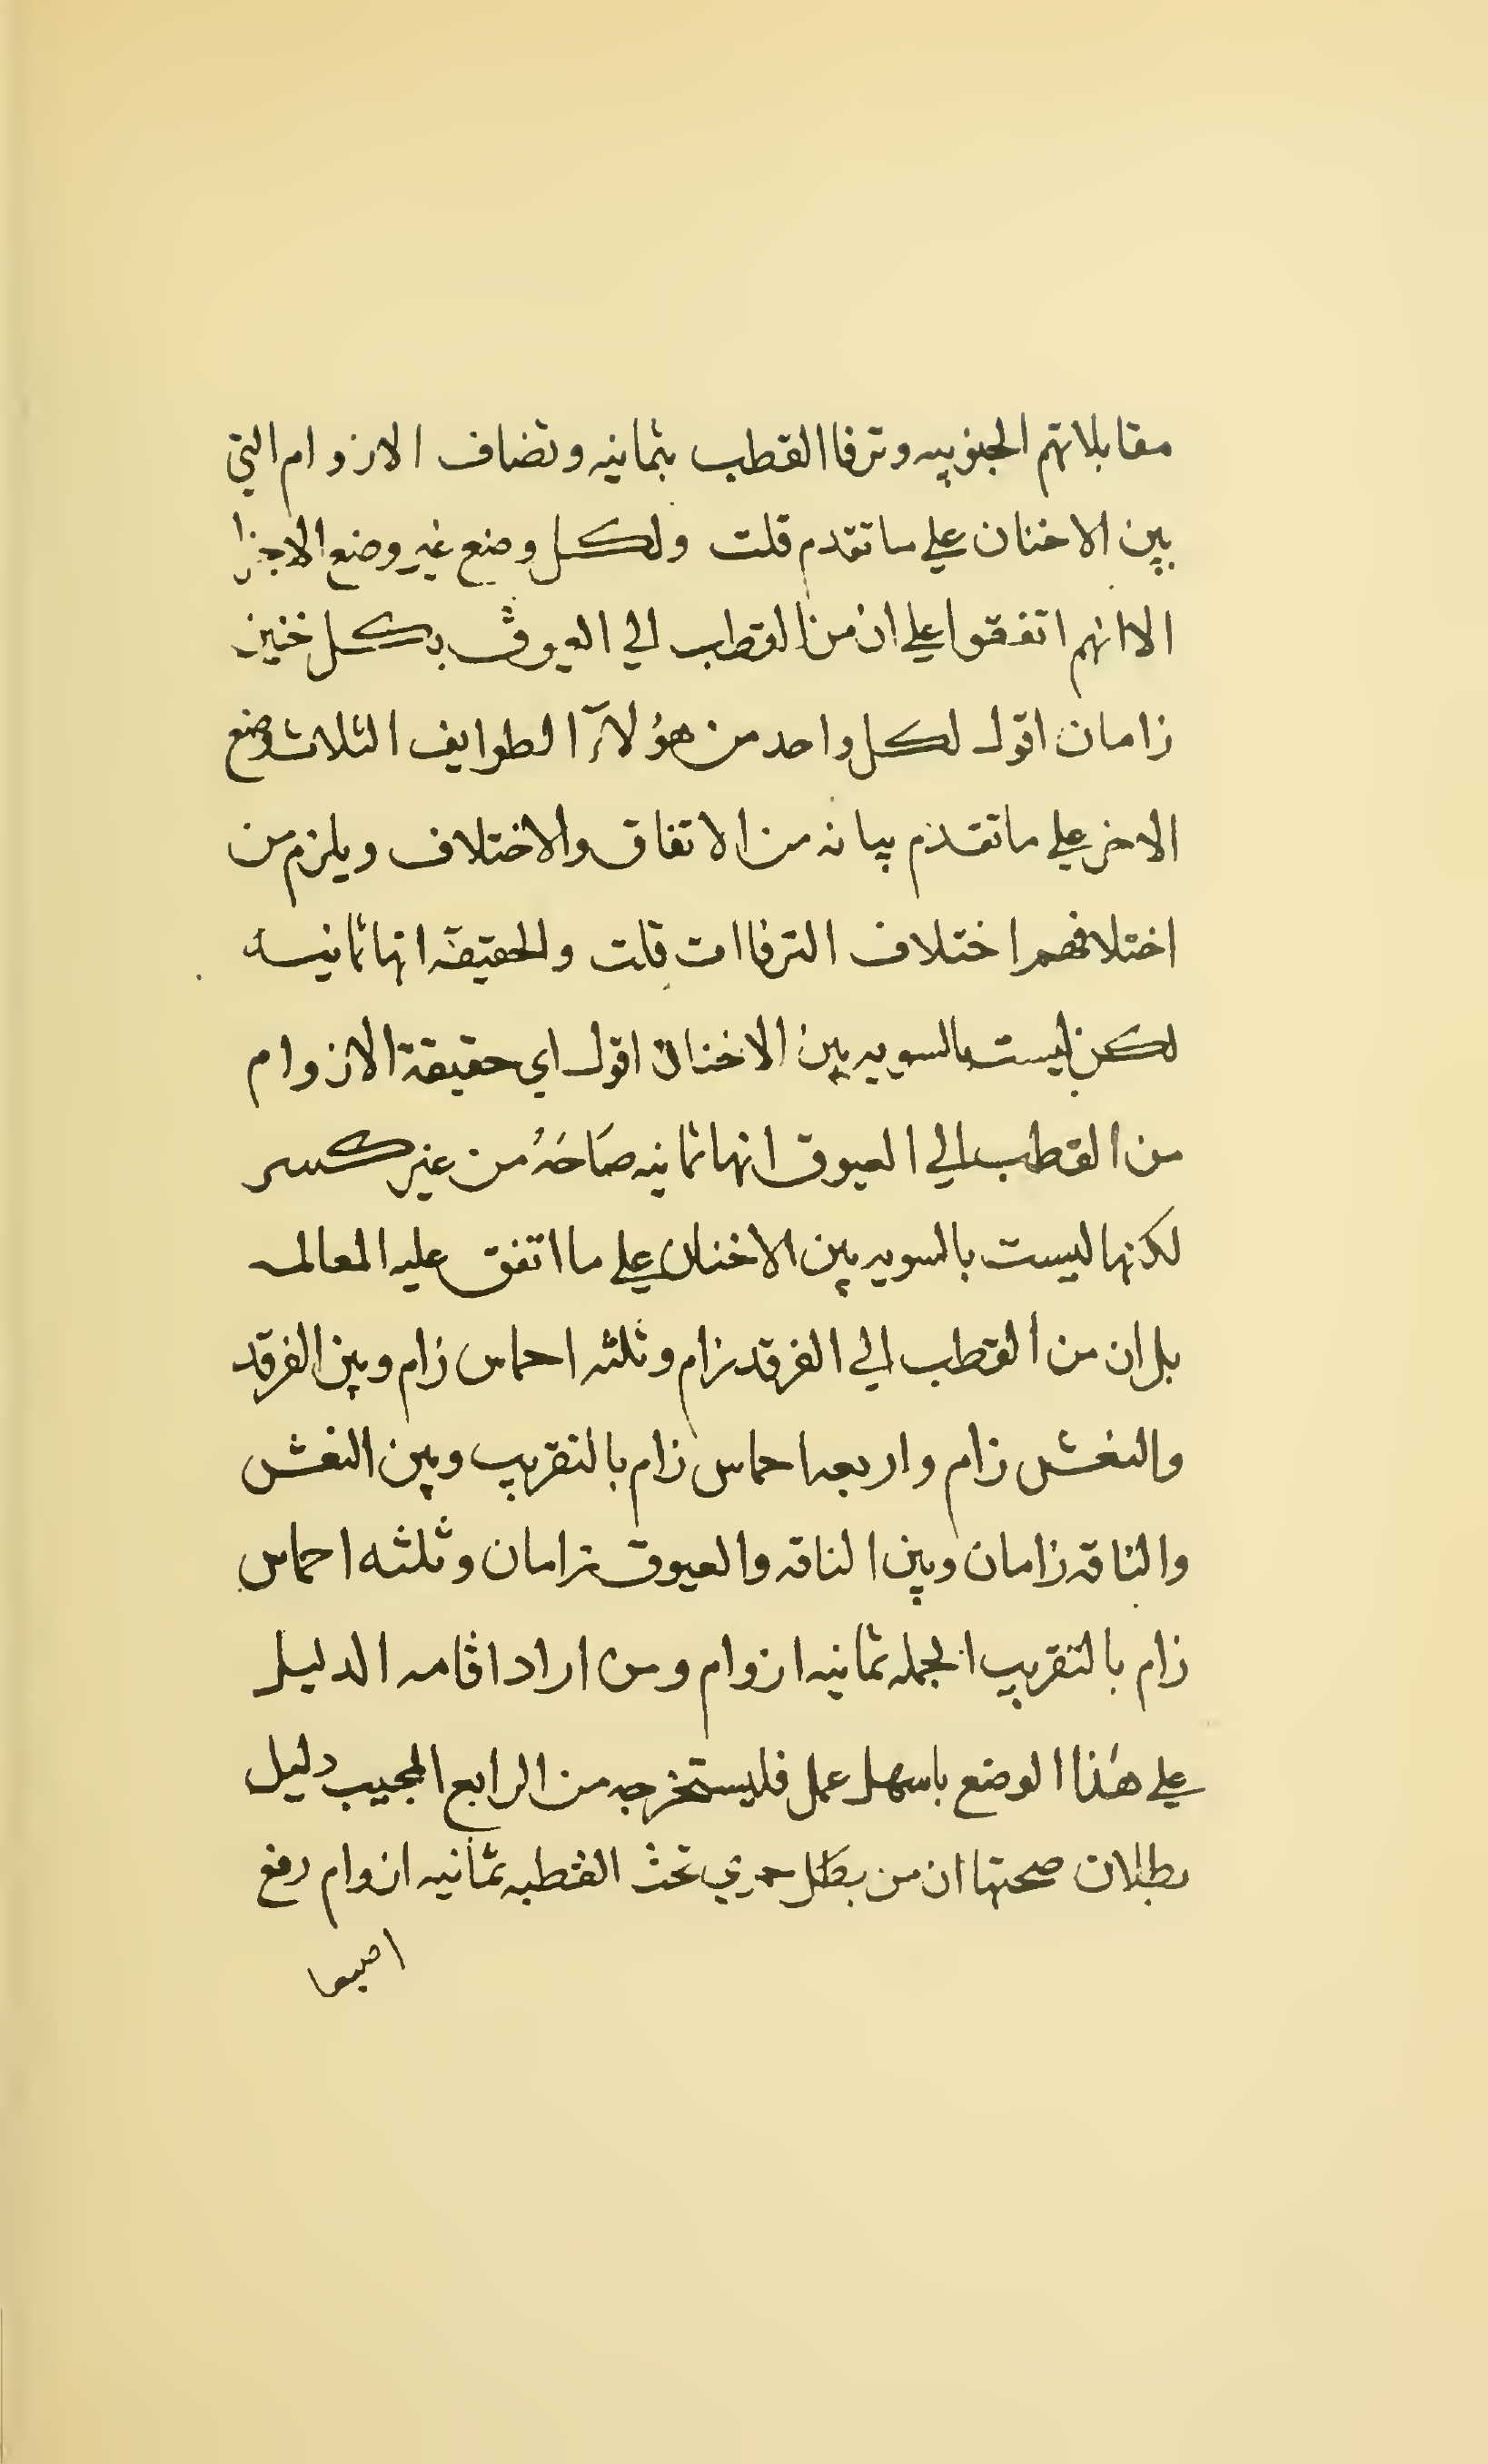 مقابلاتهم الجنوبيه وترفا القطب بثمانيه وتضاف الازوام التي
بين الاخنان علي ما تقدم قلت ولكل وضع غير وضع الاجزا
الا انهم اتفقوا علي ان من القطب الي العيوق بكل خنين
زامان اقول لكل واحد من هؤلآء الطوايف الثلاث وضع
الاخر علي ما تقدم بيانه من الاتفاق والاختلاف ويلزم من
اختلافهم اختلاف الترفاات قلت والحقيقة انها ثمانيه
لكن ليست بالسويه بين الاخنان اقول اي حقيقة الازوام
من القطب الي العيوق انها ثمانيه صَاحَهُ من غير كسر
لكنها ليست بالسويه بين الاخنان علي ما اتفق عليه المعالمه
بل ان من القطب الي الفرقد زام وثلثه احماس زام وبين الفرقد
والنعش زام واربعه احماس زام بالتقريب وبين النعش
والناقه زامان وبين الناقه والعيوق زامان وثلثه احماس
زام بالتقريب الجمله ثمانيه ازوام ومن اراد اقامه الدليل
علي هٰذا الوضع باسهل عمل فليستخرجه من الرابع المجيب دليل
بطلان صحتها ان من بطل جري تحت القطبه ثمانيه ازوام رفع
اصبعا